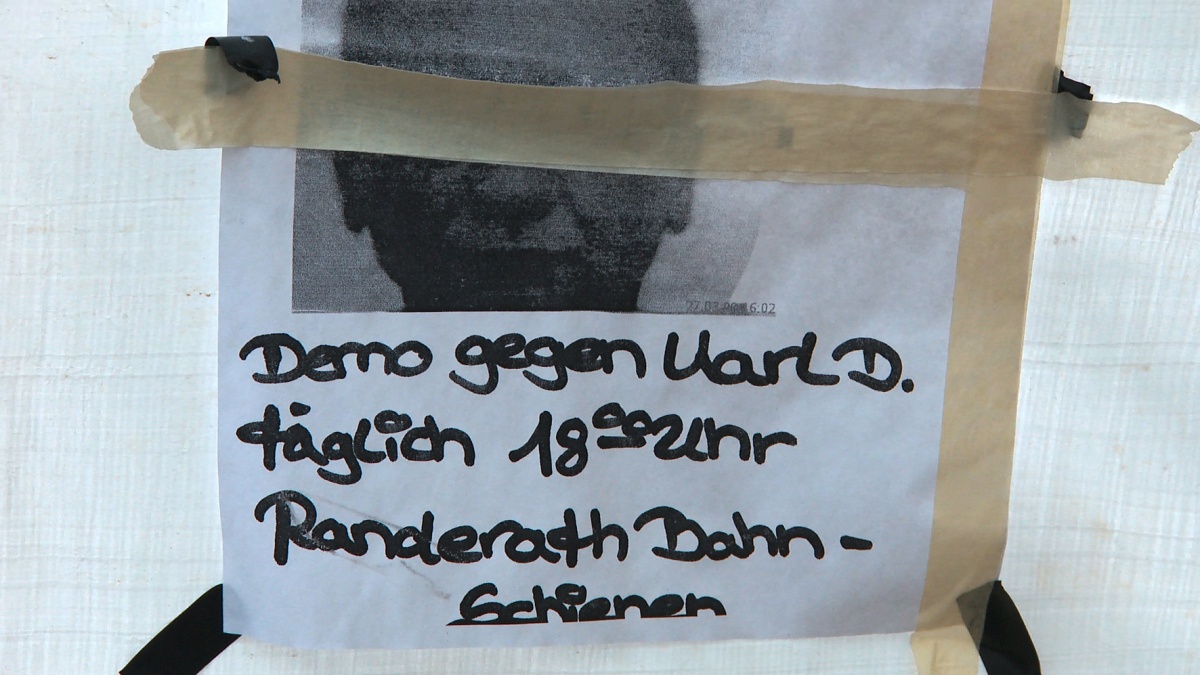 Demo gegen Karl D.
täglich 18⁰⁰ Uhr
Randerath Bahn-
Schienen